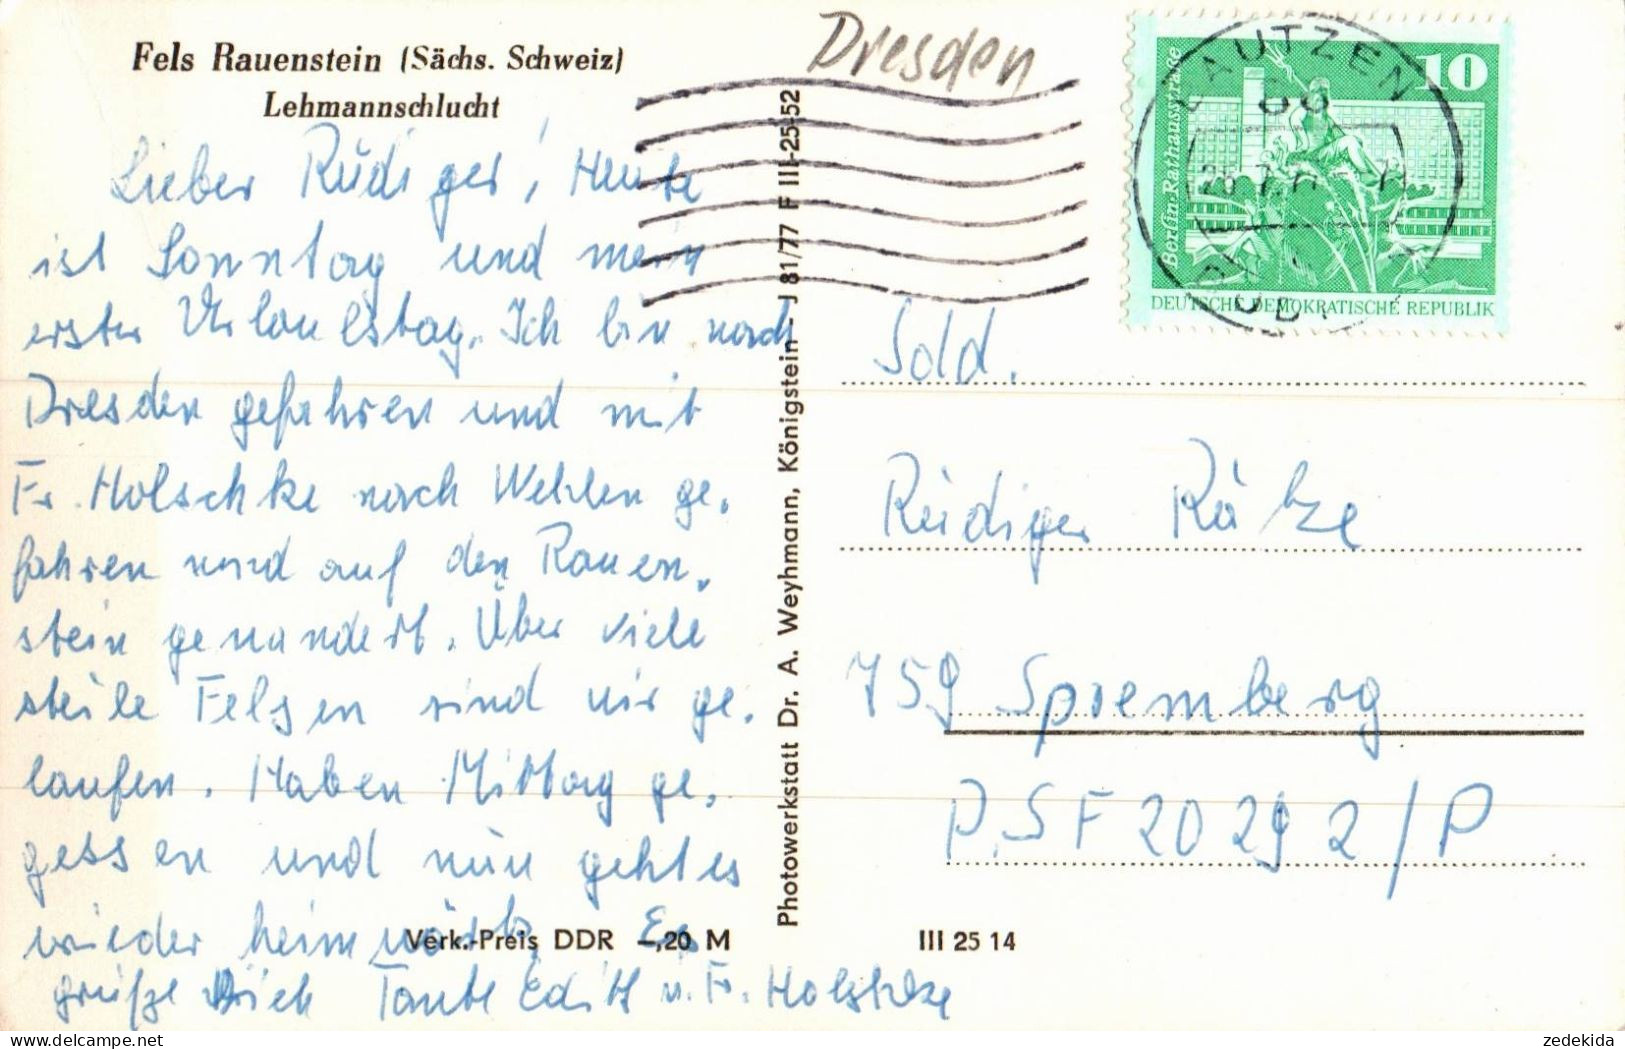 Fels Rauenstein (Sächs. Schweiz)
Lehmannschlucht
Lieber Rüdiger! Heute
ist Sonntag und mein
erster Urlaubstag. Ich bin nach
Dresden gefahren und mit
Fr. Holschke nach Wehlen ge-
fahren und auf den Rauen-
stein gewandert. Über viele
steile Felsen sind wir ge-
laufen. Haben Mittag ge-
gessen und nun geht es
wieder heimwärts. Es
grüßt Dich Tante Edith u. Fr. Holschke
Verk.-Preis DDR -,20 M
III 25 14
Photowerkstatt Dr. A. Weyhmann, Königstein - J 81/77 F III-25-52
Dresden
10
Berlin-Rathausstraße
DEUTSCHE DEMOKRATISCHE REPUBLIK
BAUTZEN
Sold.
Rüdiger Rätze
759 Spremberg
PSF 20292/P
zedekida